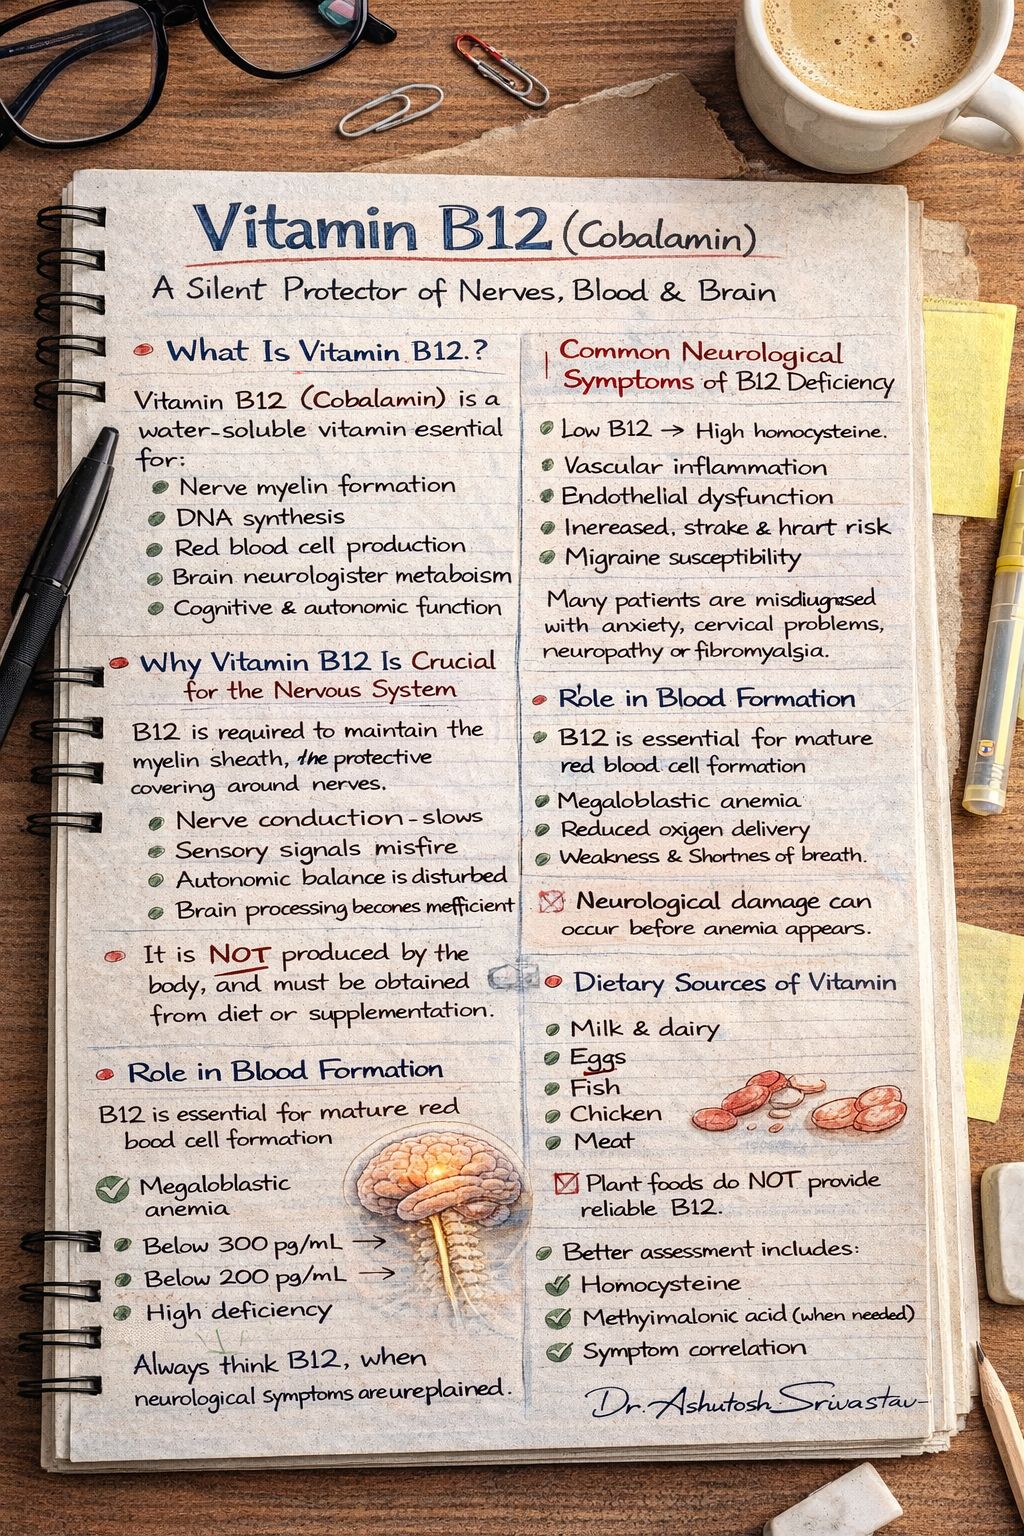 Vitamin B12 (Cobalamin)
A Silent Protector of Nerves, Blood & Brain
What Is Vitamin B12.?
Vitamin B12 (Cobalamin) is a
water-soluble vitamin esential
for:
Nerve myelin formation
DNA synthesis
Red blood cell production
Brain neurologister metaboism
Cognitive & autonomic function
Why Vitamin B12 Is Crucial
for the Nervous System
B12 is required to maintain the
myelin sheath, the protective
covering around nerves.
Nerve conduction - slows
Sensory signals misfire
Autonomic balance is disturbed
Brain processing becones mefficient
It is NOT produced by the
body, and must be obtained
from diet or supplementation.
Role in Blood Formation
B12 is essential for mature red
bood cell formation
Megaloblastic
anemia
Below 300 pg/mL →
Below 200 pg/mL →
High deficiency
Always think B12, when
neurological symptoms areureplained.
Common Neurological
Symptoms of B12 Deficiency
Low B12 → High homocysteine.
Vascular inflammation
Endothelial dysfunction
Inereased, strake & hrart risk
Migraine susceptibility
Many patients are misdiugresed
with anxiety, cervical problems,
neuropathy or fibromyalsia.
Role in Blood Formation
B12 is essential for mature
red blood cell formation
Megaloblastic anemia
Reduced oxigen delivery
Weakness & Shortnes of breath.
Neurological damage can
occur before anemia appears.
Dietary Sources of Vitamin
Milk & dairy
Eggs
Fish
Chicken
Meat
Plant foods do NOT provide
reliable B12.
Better assessment includes:
Homocysteine
Methyimalonic acid (when needed)
Symptom correlation
Dr. Ashutosh Srivastav